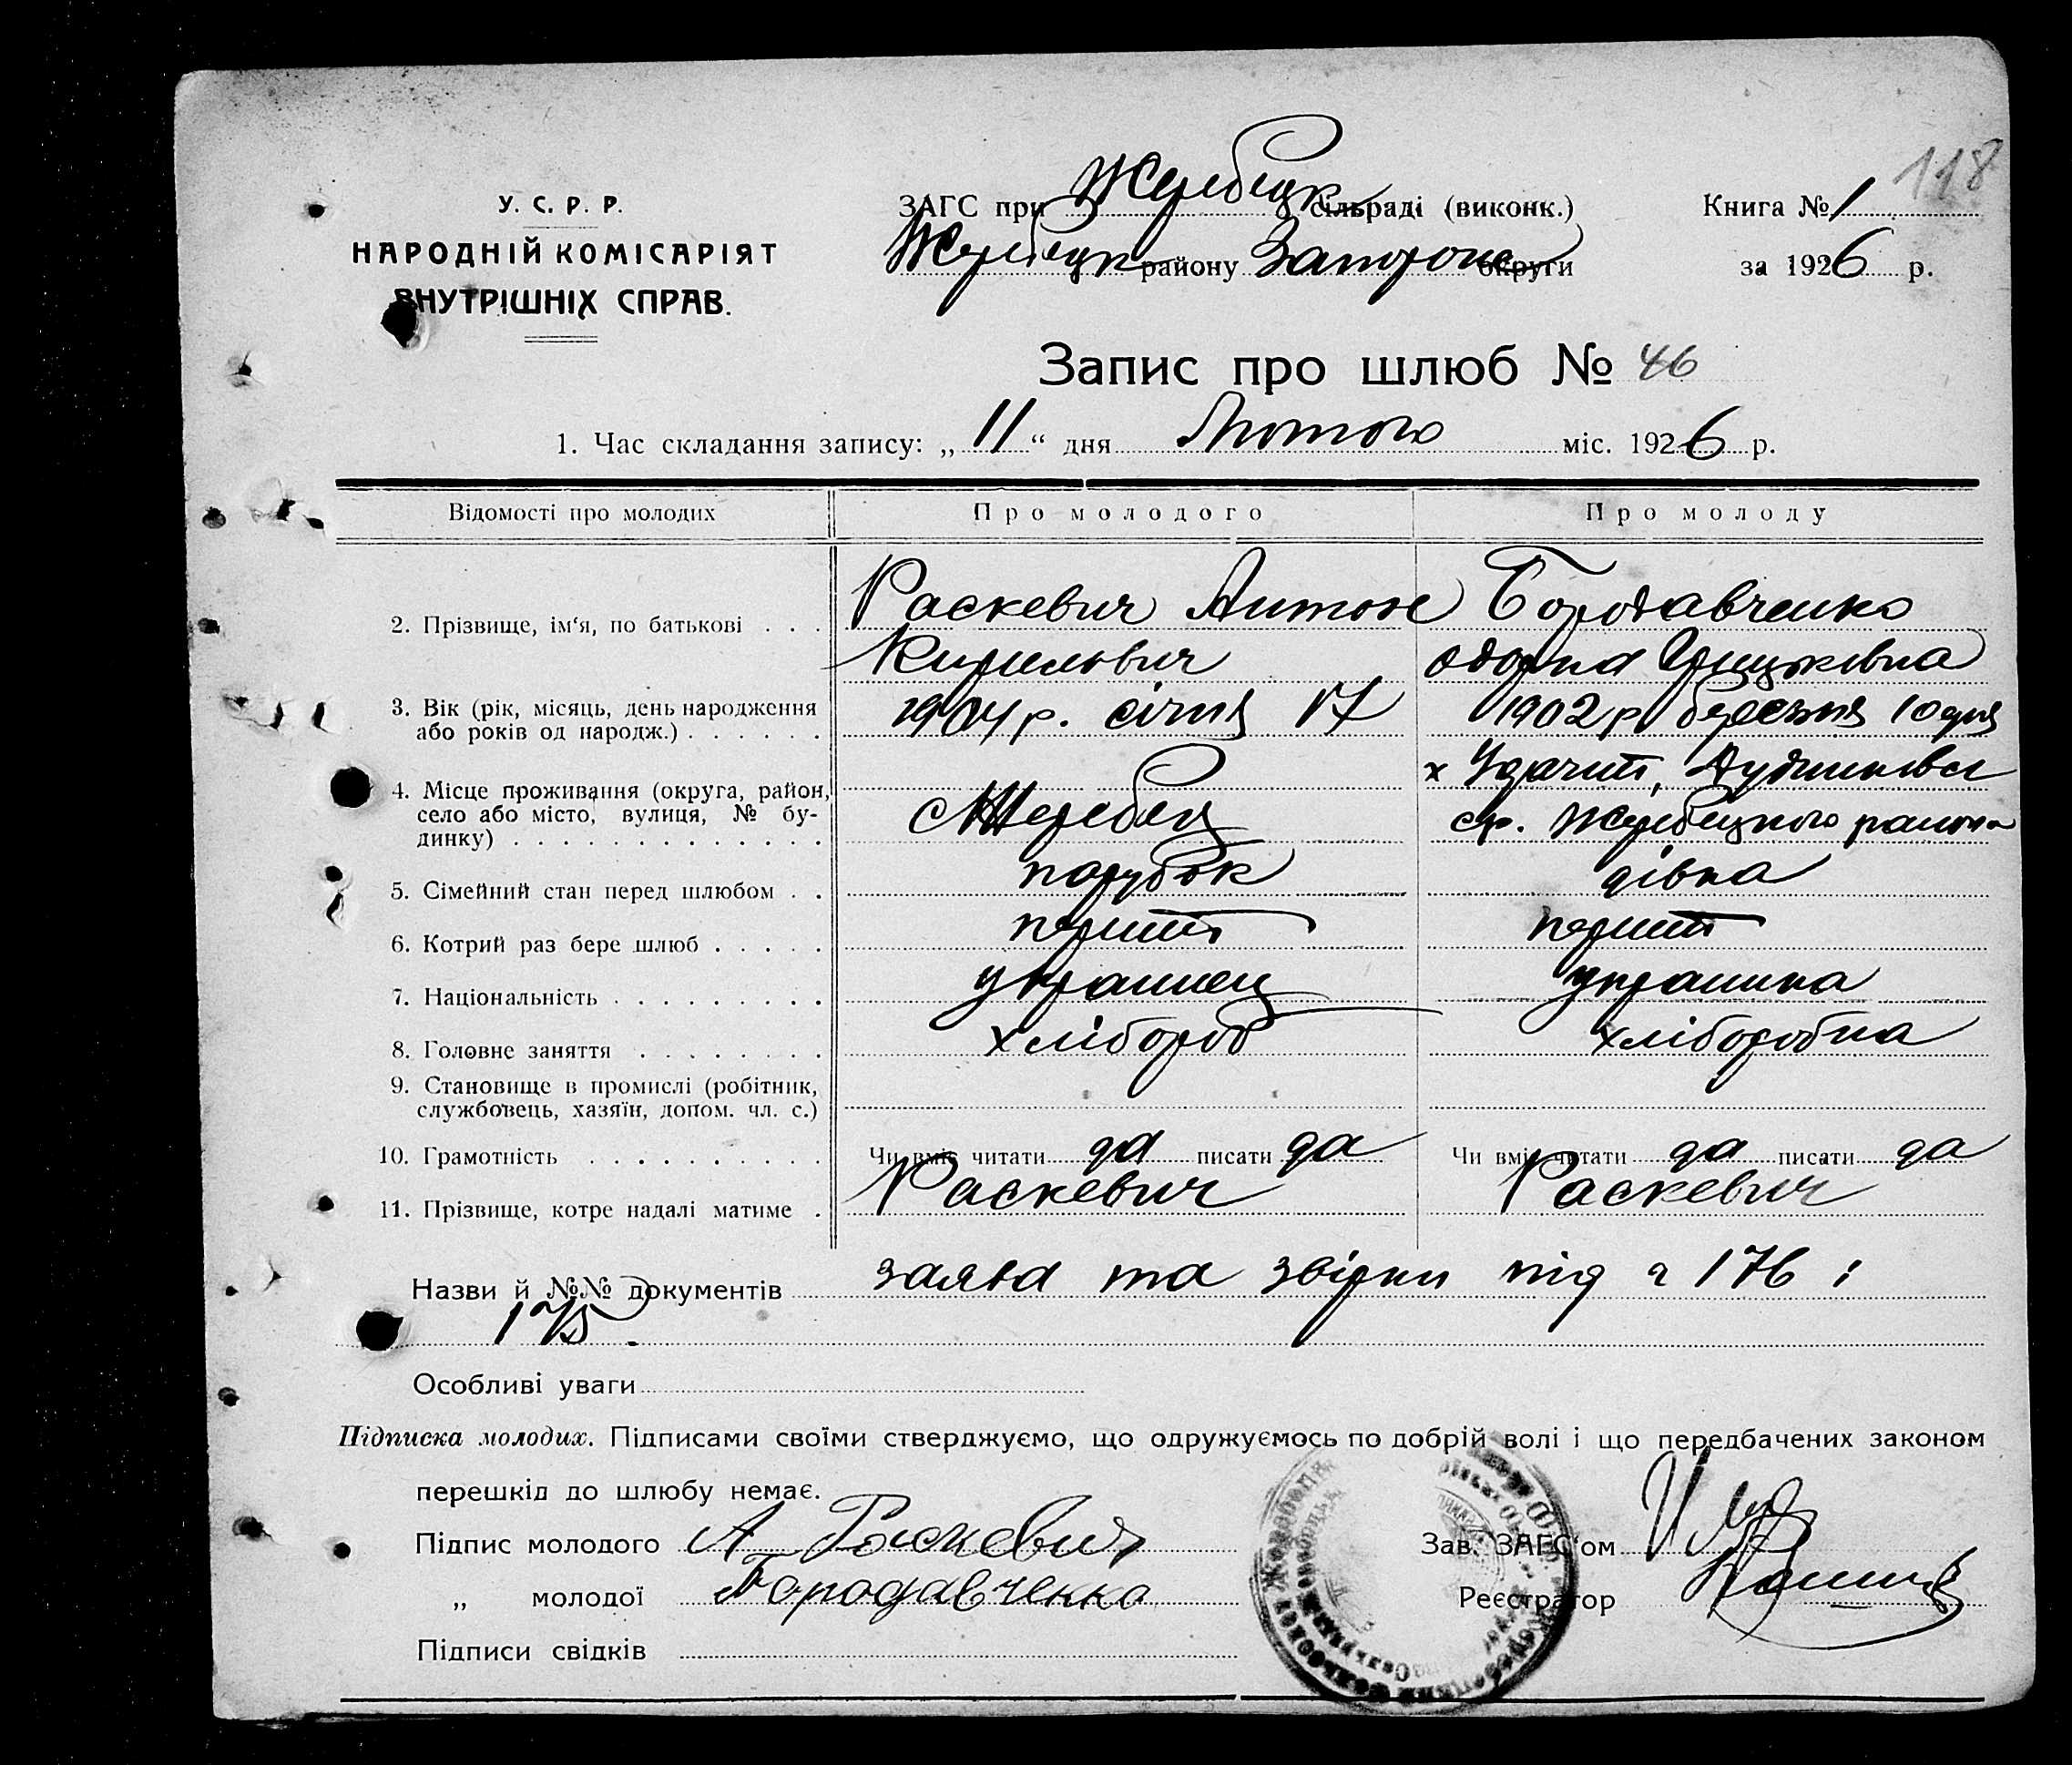 118
У. С. Р. Р.
НАРОДНІЙ КОМІСАРІЯТ
ВНУТРІШНІХ СПРАВ.
ЗАГС при Жеребецк сільраді (виконк.)
Жеребецк району Запорож округи
Книга № 1
за 1926 р.
Запис про шлюб № 46
1. Час складання запису: „11“ дня Лютого міс. 1926 р.
Відомості про молодих
Про молодого
Про молоду
2. Прізвище, ім‘я, по батькові . . .
Раскевич Антон
Кирилович
Бородавченко
Одарка Грицьковна
3. Вік (рік, місяць, день народження
або років од народж.) . . . . . .
1904 р. січня 17
1902 р березня 10 дня
4. Місце проживання (округа, район,
село або місто, вулиця, № бу-
динку) . . . . . . . . . . . . .
с Жеребец
х Удачний,
ср. Жеребецкого района
5. Сімейний стан перед шлюбом . .
парубок
дівка
6. Котрий раз бере шлюб . . . . .
перший
перший
7. Національність . . . . . . . . .
украинец
украинка
8. Головне заняття . . . . . . . .
хлібороб
хліборобка
9. Становище в промислі (робітник,
службовець, хазяїн, допом. чл. с.)
10. Грамотність . . . . . . . . . .
Чи вміє читати да писати да
Чи вміє читати да писати да
11. Прізвище, котре надалі матиме .
Раскевич
Раскевич
Назви й №№ документів заява та звірки під 176 і
175.
Особливі уваги
Підписка молодих. Підписами своїми стверджуємо, що одружуємось по добрій волі і що передбачених законом
перешкід до шлюбу немає.
Підпис молодого А Раскевич
„ молодої Бородавченко
Підписи свідків
Зав. ЗАГС‘ом
Реєстратор